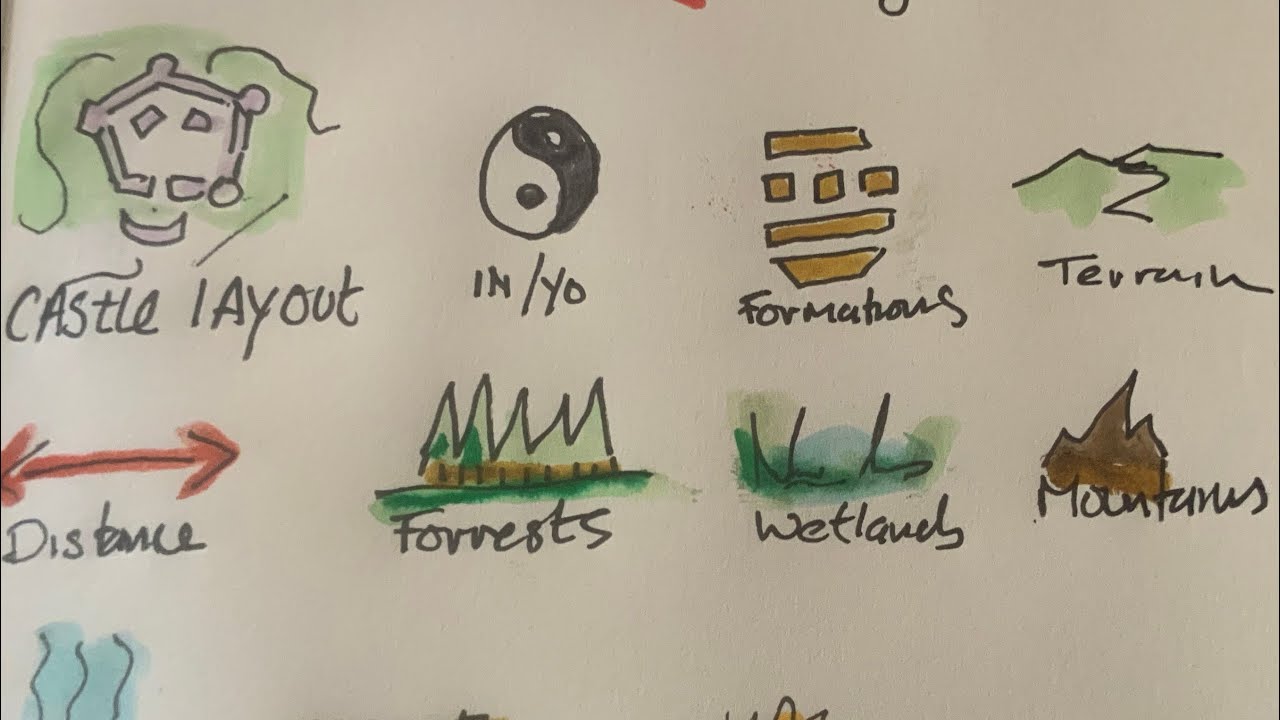 CAstle lAyout
IN/YO
Formations
Terrain
Distance
Forrests
Wetlands
Mountains